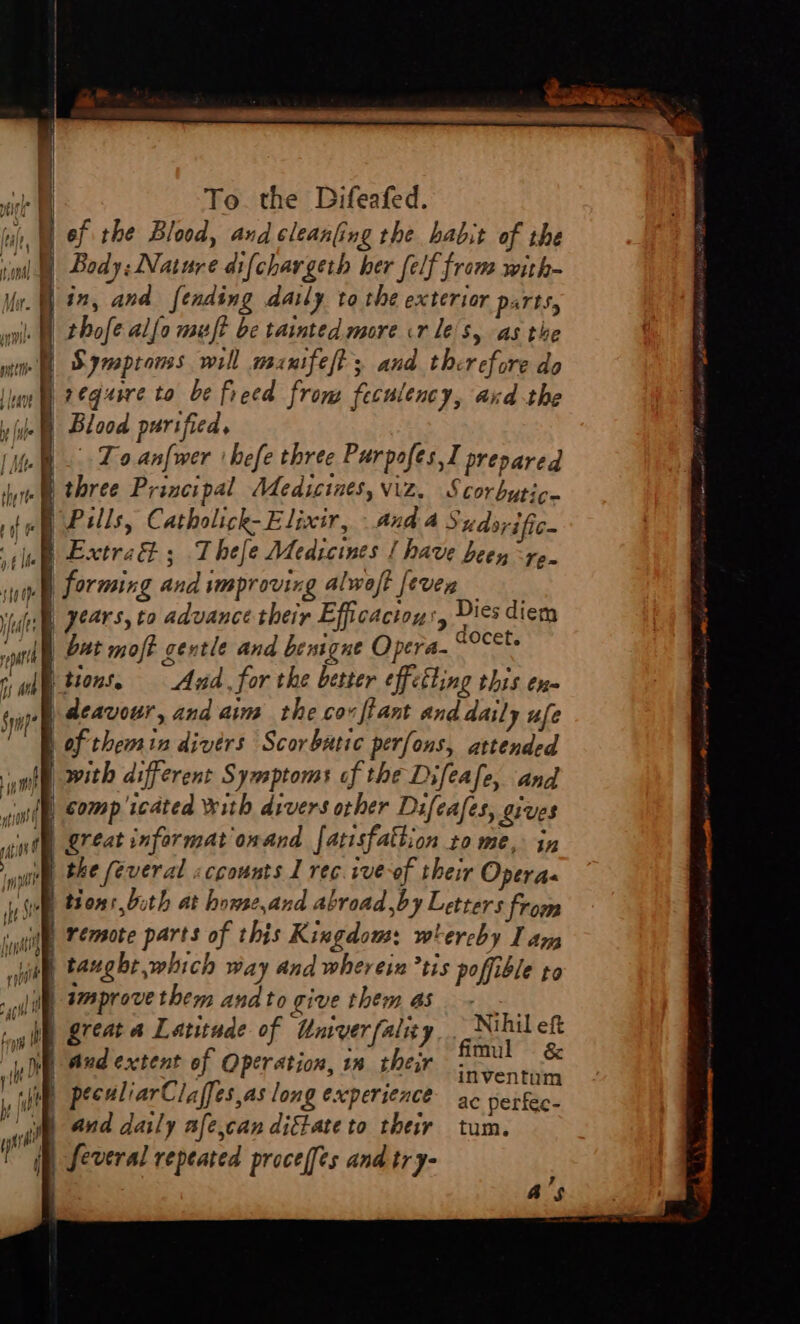 To the Diſeaſed.
of the Blood, and cleanſing the habit of the
Body: Nature diſchargeth her ſelf from with-
in, and ſending daily to the exterior parts,
thoſe alſo muſt be tainted more or leſs, as the
Symptoms will manifeſt; and therefore do
require to be freed from feculency, and the
Blood purified.
To anſwer theſe three Purpoſes, I prepared
three Principal Medicines, viz. Scorbutic-
Pills, Catholick-Elixir, and a Sudorific-
Extract; Theſe Medicines I have been re-
forming and improving almoſt ſeven
years, to advance their Efficacious,
but moſt gentle and benigne Opera-
Dies diem
docet.
tions. And for the better effecting this en-
deavour, and aim the conſtant and daily uſe
of them in divers Scorbutic perſons, attended
with different Symptoms of the Diſeaſe, and
complicated with divers other Diſeaſes, gives
great information and ſatisfaction to me, in
the ſeveral accounts I receive of their Opera-
tions, both at home, and abroad, by Letters from
remote parts of this Kingdom: whereby I am
taught, which way and wherein 'tis poſſible to
improve them and to give them as
great a Latitude of Univerſality
and extent of Operation, in their
peculiar Claſſes, as long experience
and daily uſe, can dictate to their
ſeveral repeated proceſſes and try-
Nihil eſt
ſimul &
inventum
ac perfec-
tum.
a's